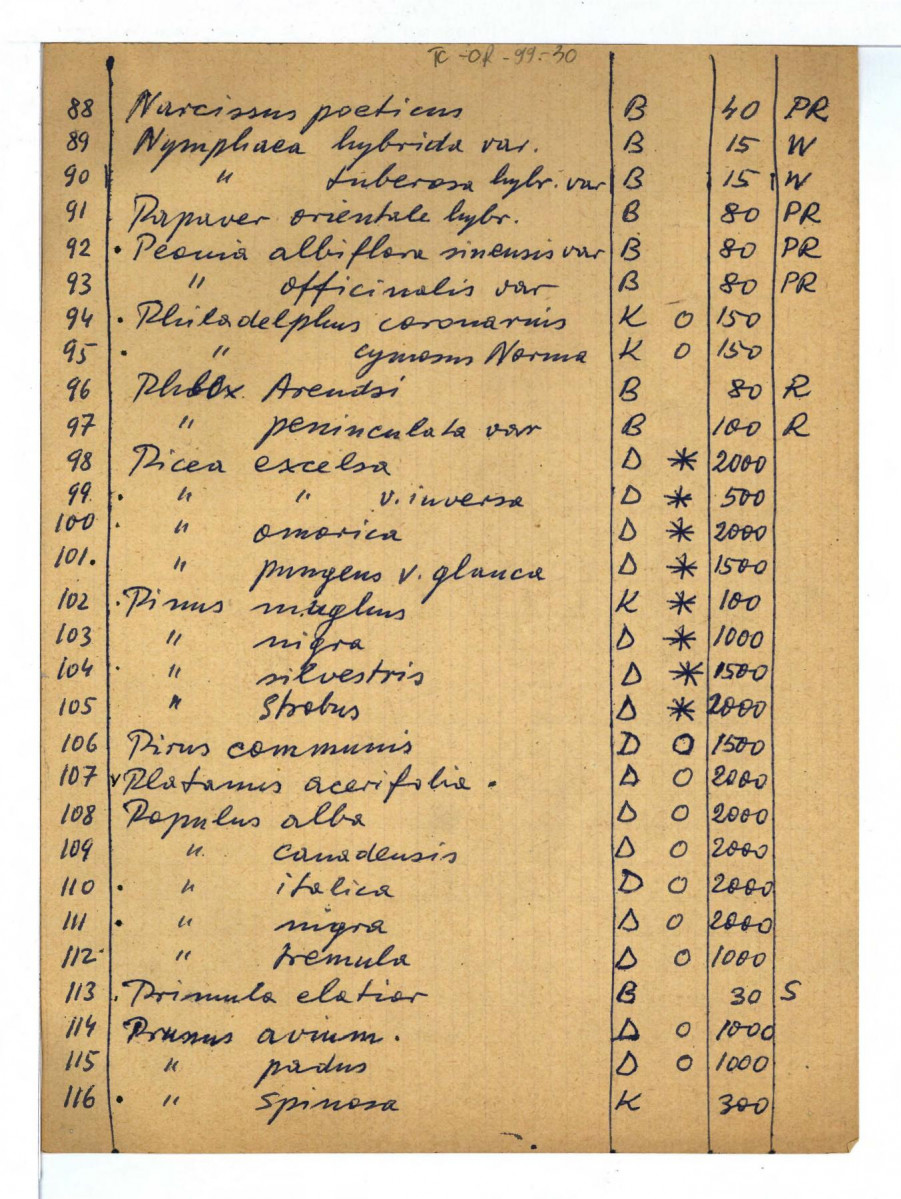 TC-OR-99-30
88 Narcissus poeticus B 40 PR
89 Nymphaea hybrida var. B 15 W
90 " tuberosa hybr. var B 15 W
91 Papaver orientale hybr. B 80 PR
92 • Peonia albiflora sinensis var B 80 PR
93 " officinalis var B 80 PR
94 • Philadelphus coronarius K O 150
95 • " cymosus Norma K O 150
96 Phlox Arendsi B 80 R
97 " peninculata var B 100 R
98 Picea excelsa D * 2000
99 • " " v. inversa D * 500
100 • " omorica D * 2000
101. " pungens v. glauca D * 1500
102 • Pinus mughus K * 100
103 " nigra D * 1000
104 • " silvestris D * 1500
105 " Strobus D * 2000
106 Pirus communis D O 1500
107 v Platanus acerifolia. D O 2000
108 Populus alba D O 2000
109 " canadensis D O 2000
110 • " italica D O 2000
111 • " nigra D O 2000
112 " tremula D O 1000
113 • Primula elatior B 30 S
114 Prunus avium. D O 1000
115 " padus D O 1000
116 • " Spinosa K 300